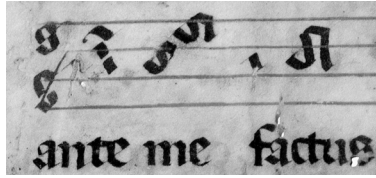 ante me factus